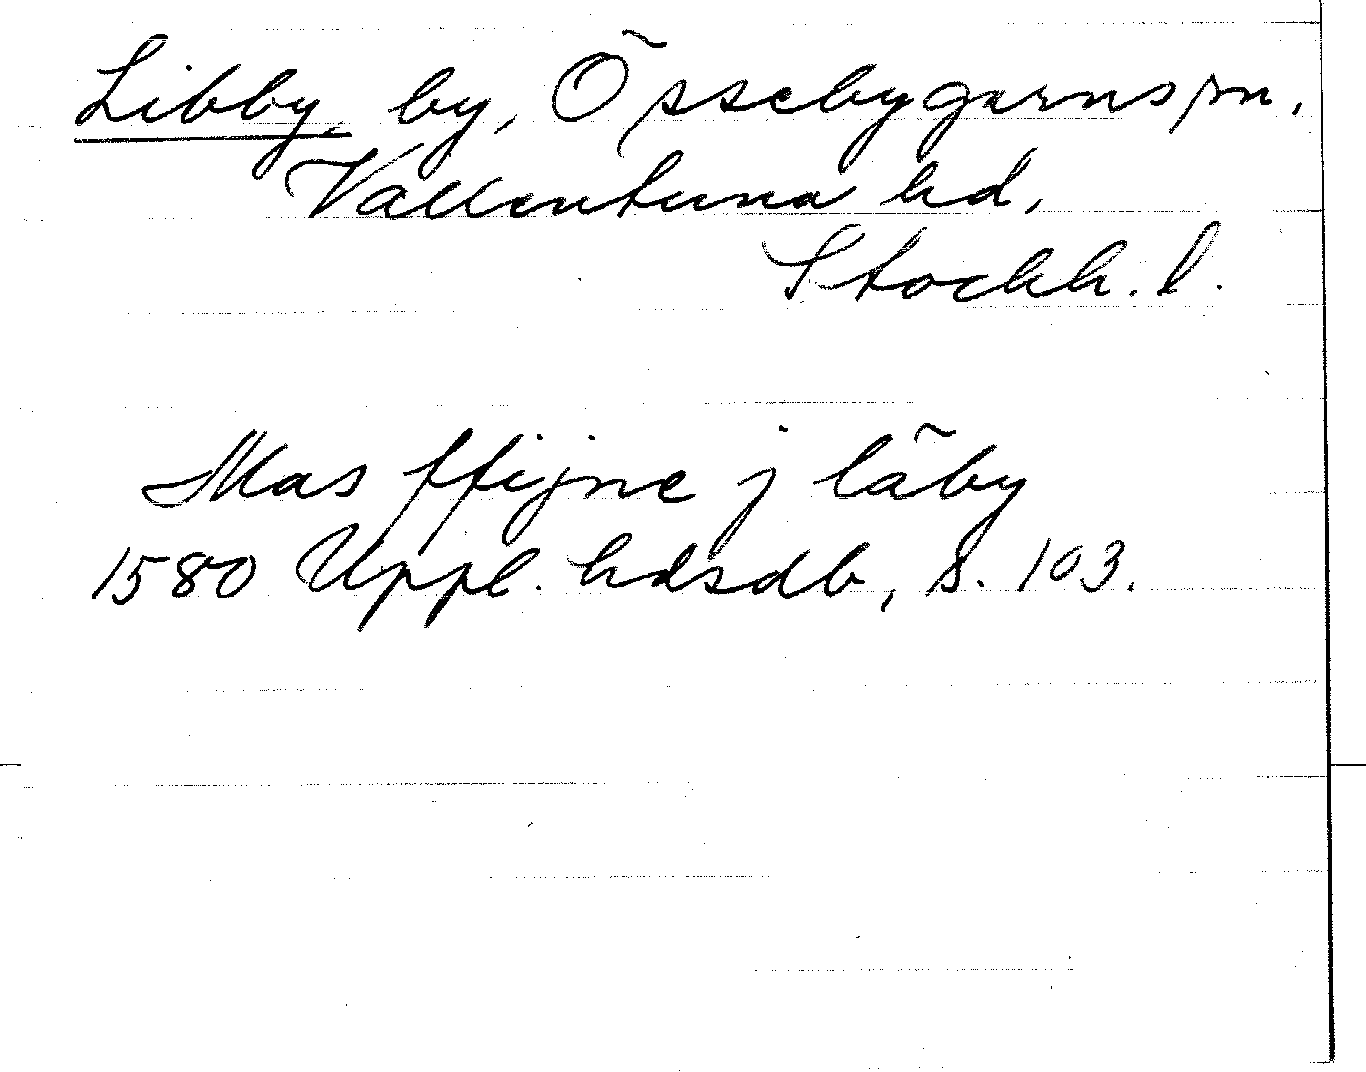 Libby, by, Össebygarns sn,
Vallentuna hd,
Stockh. l.
Mas ffijne j läby
1580 Uppl. hdsdb, s. 103.